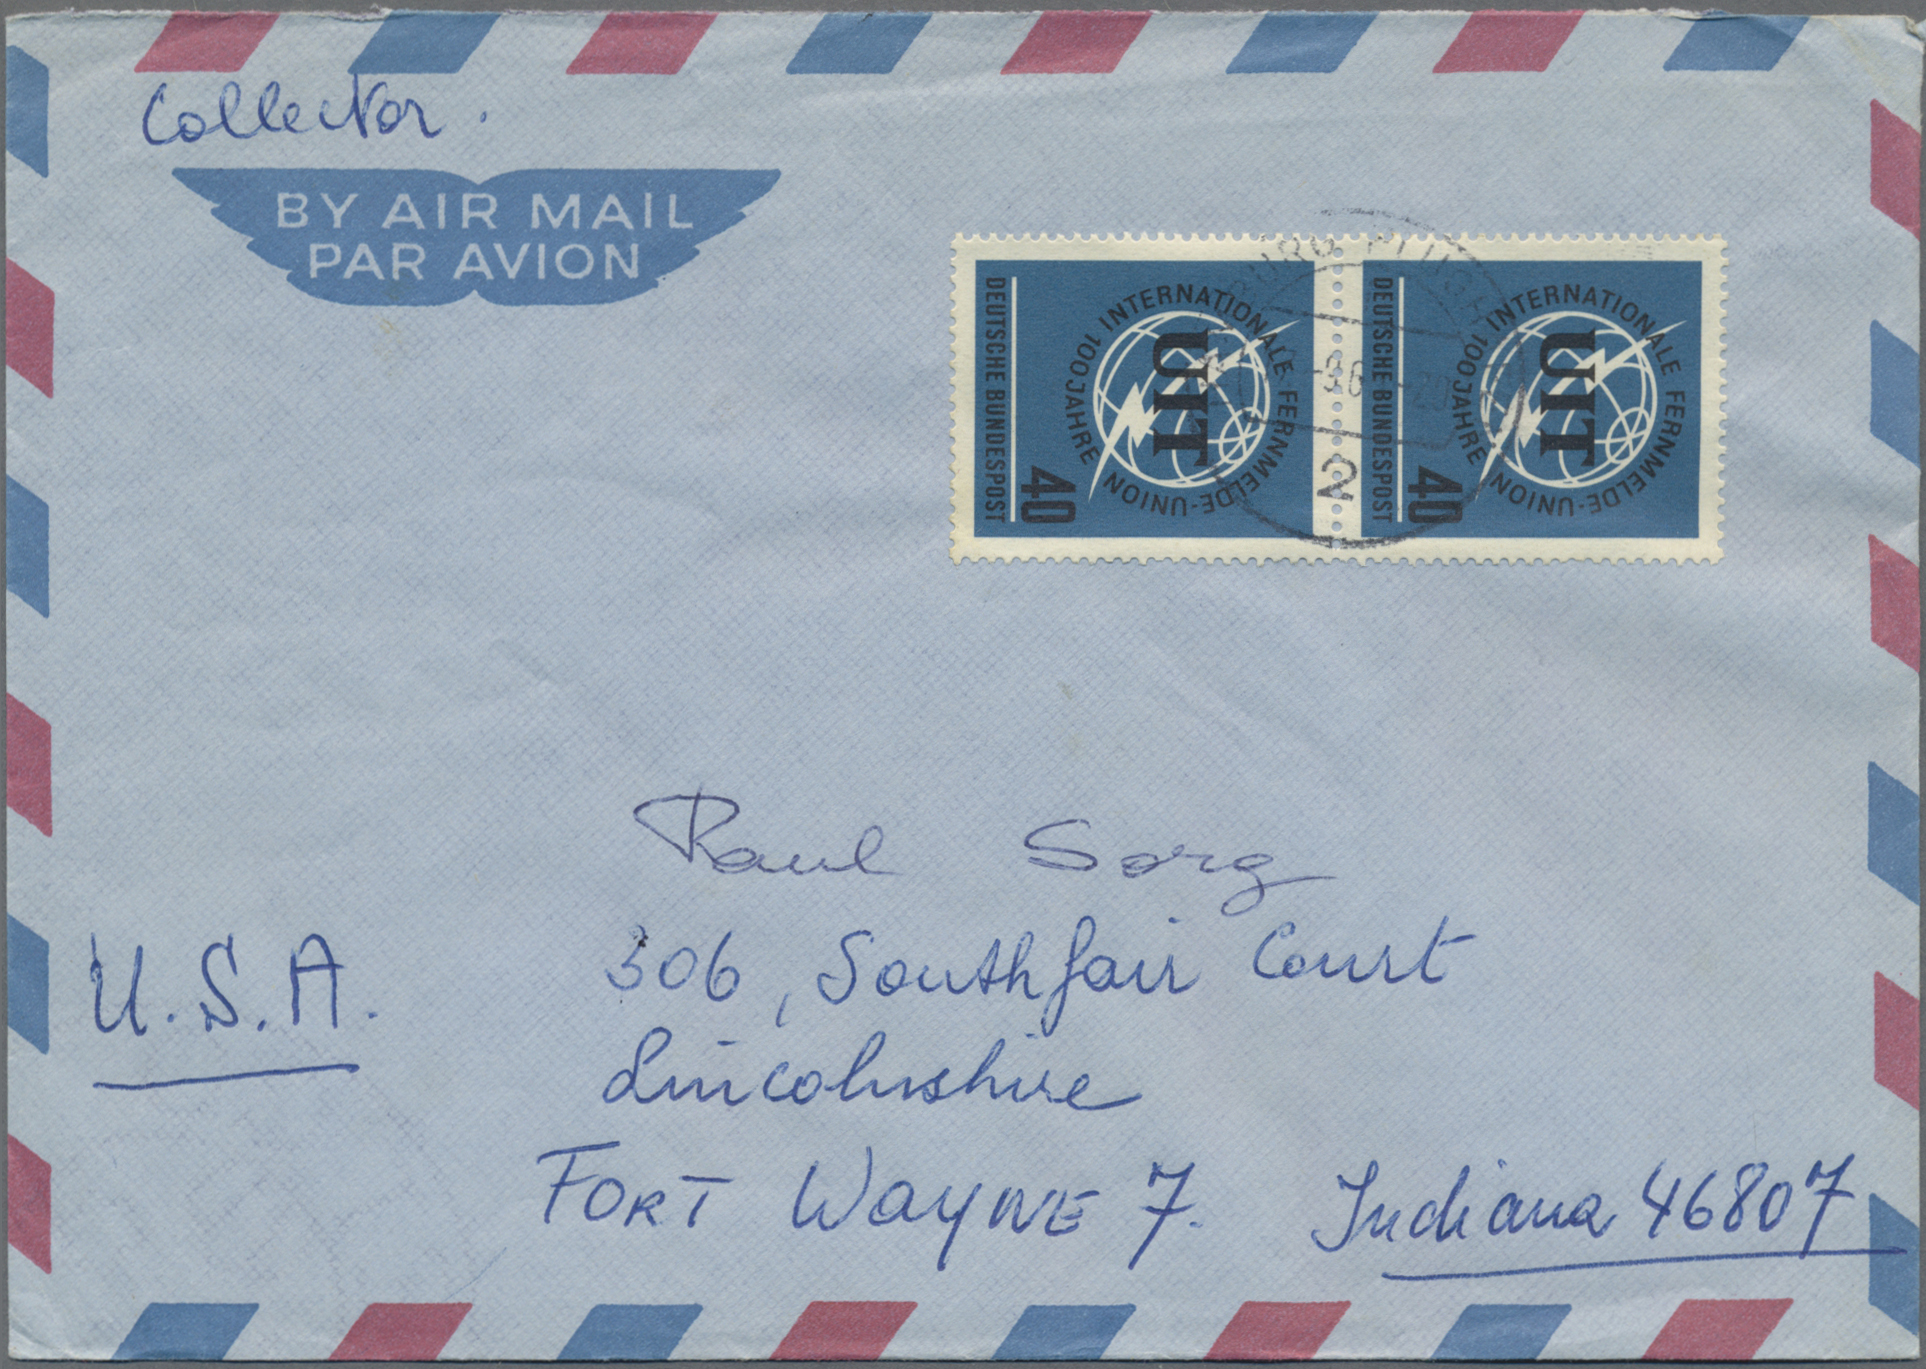 Collector.
BY AIR MAIL
PAR AVION
DEUTSCHE BUNDESPOST
40
100 JAHRE INTERNATIONALE FERNMELDE-UNION
UIT
DEUTSCHE BUNDESPOST
40
100 JAHRE INTERNATIONALE FERNMELDE-UNION
UIT
2
Paul Sorg
U.S.A.
306, Southfair Court
Lincolnshire
FORT WAYNE 7. Indiana 46807